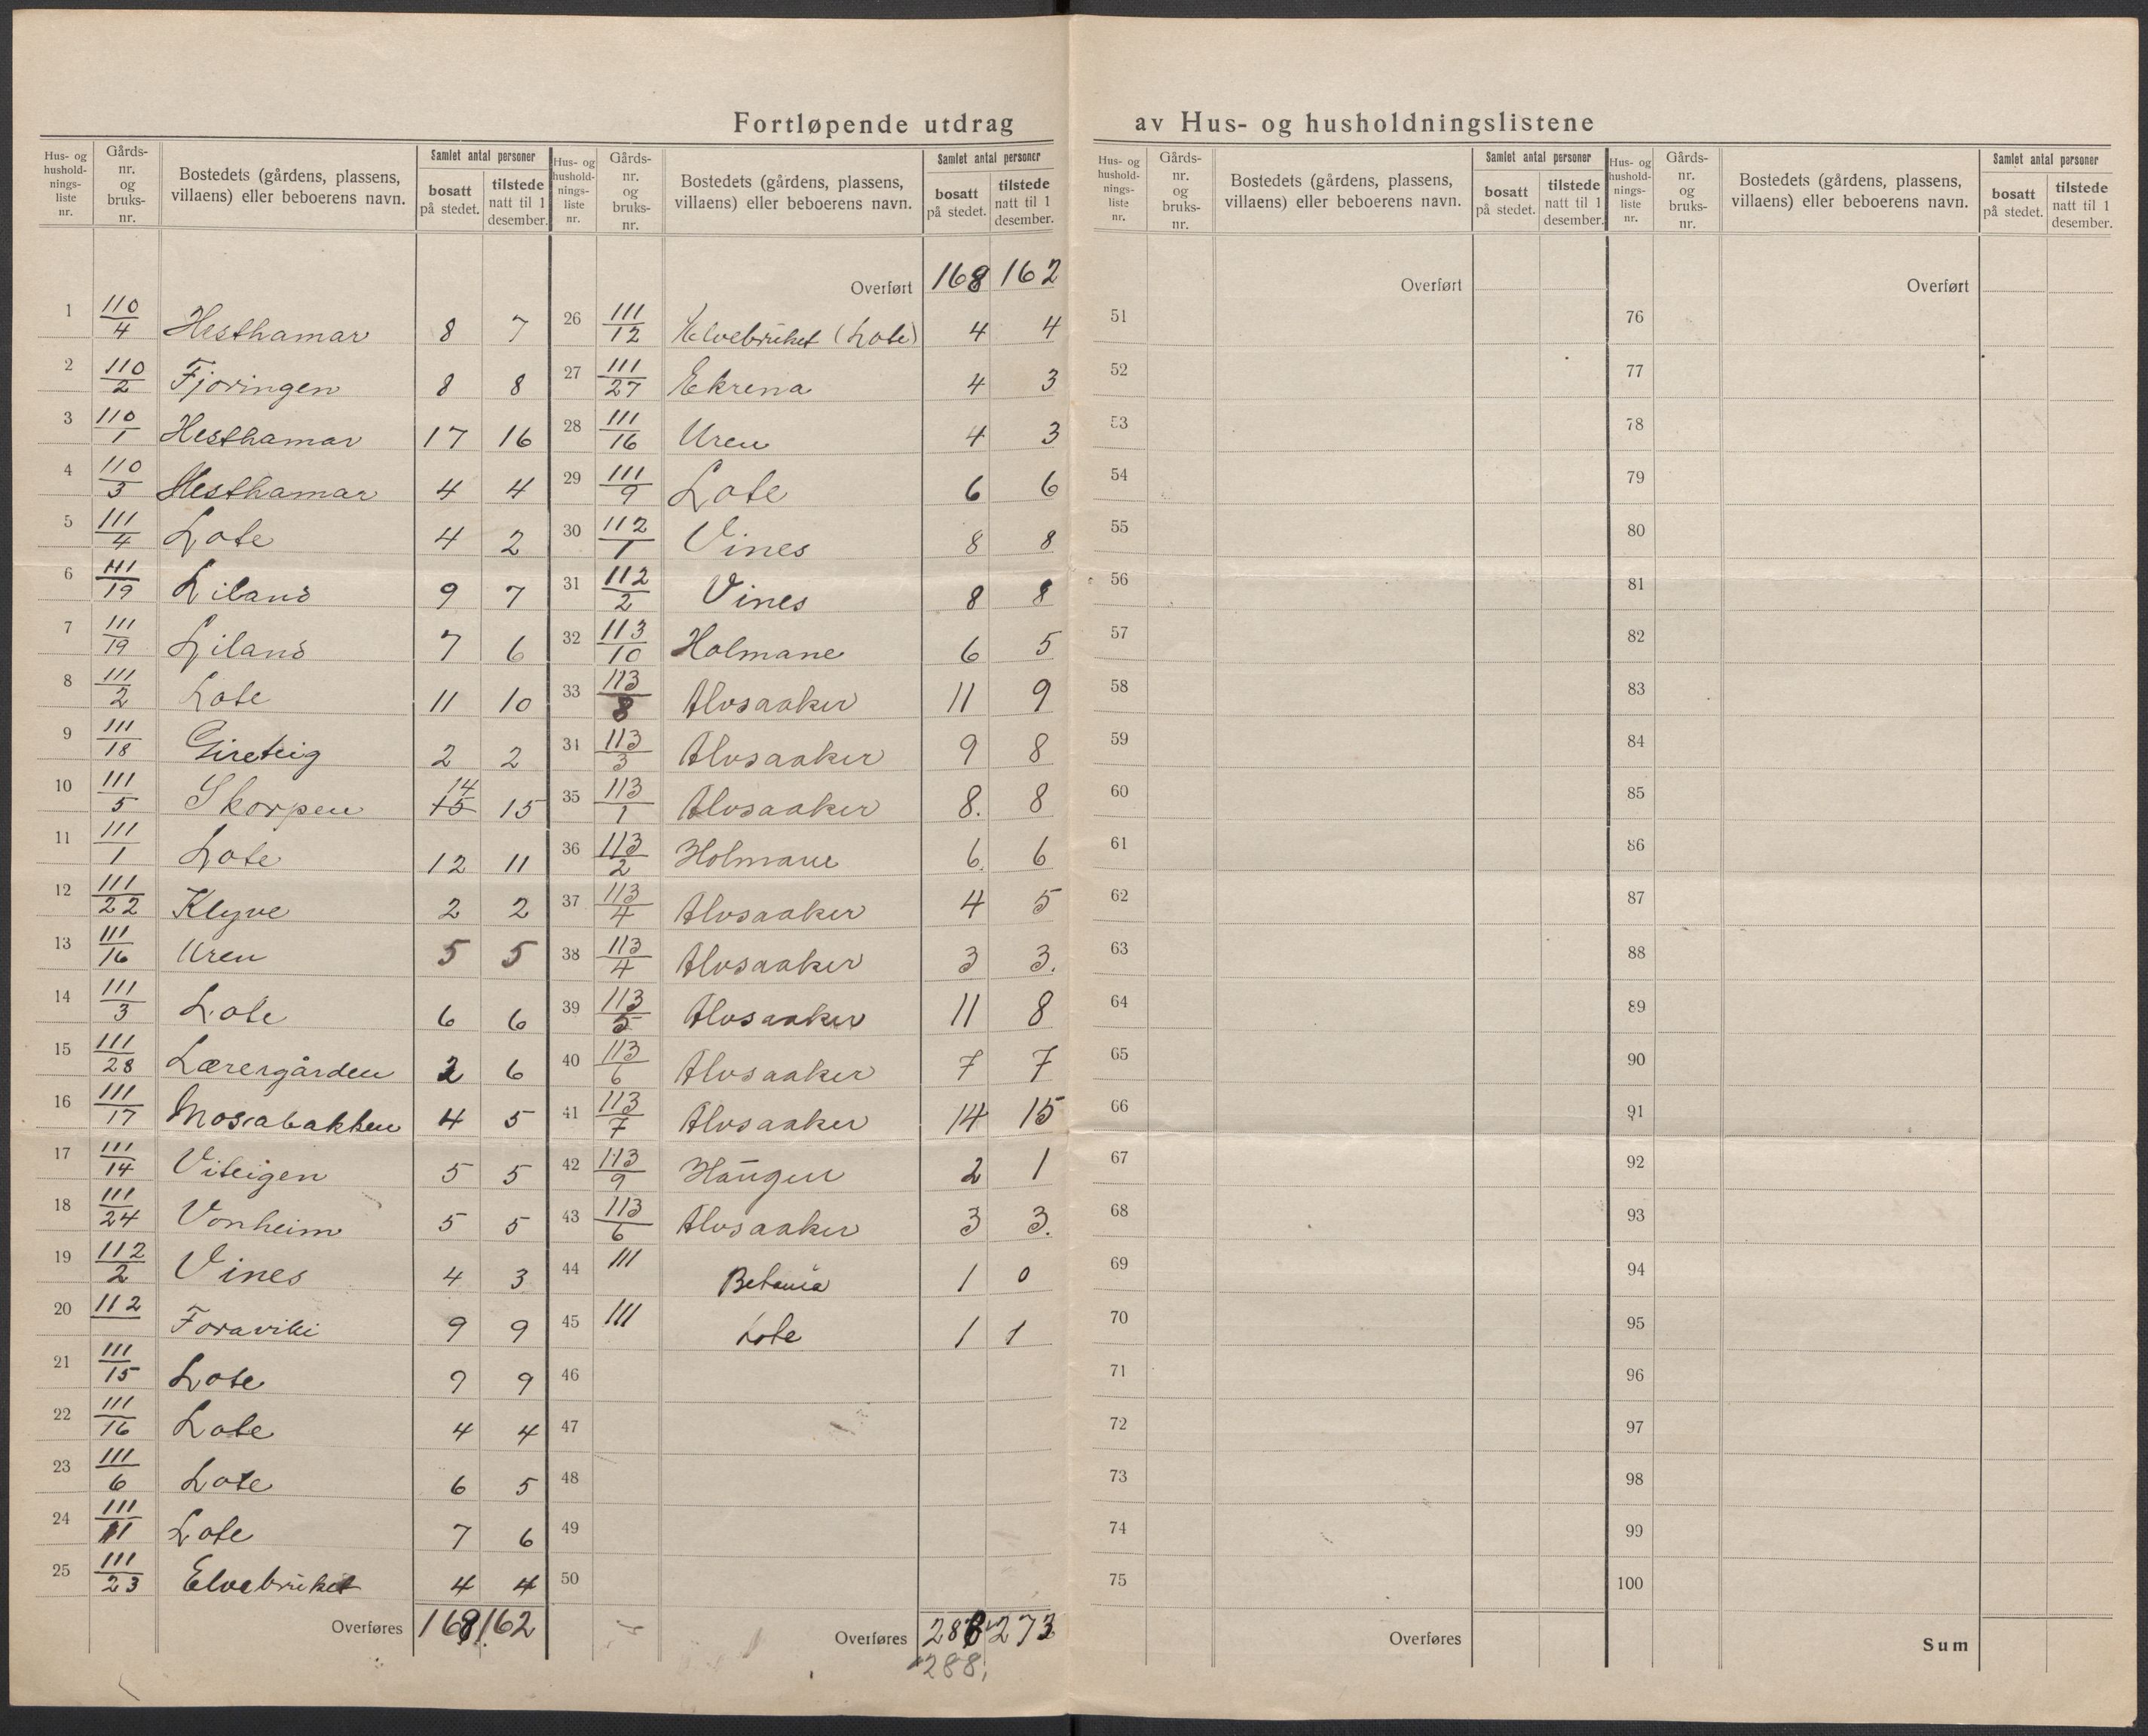 Fortløpende utdrag av Hus- og husholdningslistene
Hus- og hushold-nings-liste nr. | Gårds-nr. og bruks-nr. | Bostedets (gårdens, plassens, villaens) eller beboerens navn. | Samlet antal personer | bosatt på stedet. | tilstede natt til 1 desember.
1 110/4 Hesthamar 8 7
2 110/2 Fjoringen 8 8
3 110/1 Hesthamar 17 16
4 110/3 Hesthamar 4 4
5 111/4 Lote 4 2
6 111/19 Liland 9 7
7 111/19 Liland 7 6
8 111/2 Lote 11 10
9 111/18 Gireteig 2 2
10 111/5 Skorpen 14 15 15
11 111/1 Lote 12 11
12 111/22 Klyve 2 2
13 111/16 Uren 5 5
14 111/3 Lote 6 6
15 111/28 Lærergården 2 6
16 111/17 Mosabakken 4 5
17 111/14 Viteigen 5 5
18 111/24 Vonheim 5 5
19 112/2 Vines 4 3
20 112 Foraviki 9 9
21 111/15 Lote 9 9
22 111/16 Lote 4 4
23 111/6 Lote 6 5
24 111/11 Lote 7 6
25 111/23 Elvebruket 4 4
Overføres 168 162
Hus- og hushold-nings-liste nr. | Gårds-nr. og bruks-nr. | Bostedets (gårdens, plassens, villaens) eller beboerens navn. | Samlet antal personer | bosatt på stedet. | tilstede natt til 1 desember.
Overført 168 162
26 111/12 Elvebruket (Lote) 4 4
27 111/27 Ekrena 4 3
28 111/16 Uren 4 3
29 111/9 Lote 6 6
30 112/1 Vines 8 8
31 112/2 Vines 8 8
32 113/10 Holmane 6 5
33 113/8 Alvsaaker 11 9
34 113/3 Alvsaaker 9 8
35 113/1 Alvsaaker 8. 8
36 113/2 Holmane 6. 6
37 113/4 Alvsaaker 4 5
38 113/4 Alvsaaker 3 3.
39 113/5 Alvsaaker 11 8
40 113/6 Alvsaaker 7 7
41 113/7 Alvsaaker 14 15
42 113/9 Haugen 2 1
43 113/6 Alvsaaker 3 3.
44 111 Betania 1 0
45 111 Lote 1 1
46
47
48
49
50
Overføres 288 273
288
Hus- og hushold-nings-liste nr. | Gårds-nr. og bruks-nr. | Bostedets (gårdens, plassens, villaens) eller beboerens navn. | Samlet antal personer | bosatt på stedet. | tilstede natt til 1 desember.
Overført
51
52
53
54
55
56
57
58
59
60
61
62
63
64
65
66
67
68
69
70
71
72
73
74
75
Overføres
Hus- og hushold-nings-liste nr. | Gårds-nr. og bruks-nr. | Bostedets (gårdens, plassens, villaens) eller beboerens navn. | Samlet antal personer | bosatt på stedet. | tilstede natt til 1 desember.
Overført
76
77
78
79
80
81
82
83
84
85
86
87
88
89
90
91
92
93
94
95
96
97
98
99
100
Sum